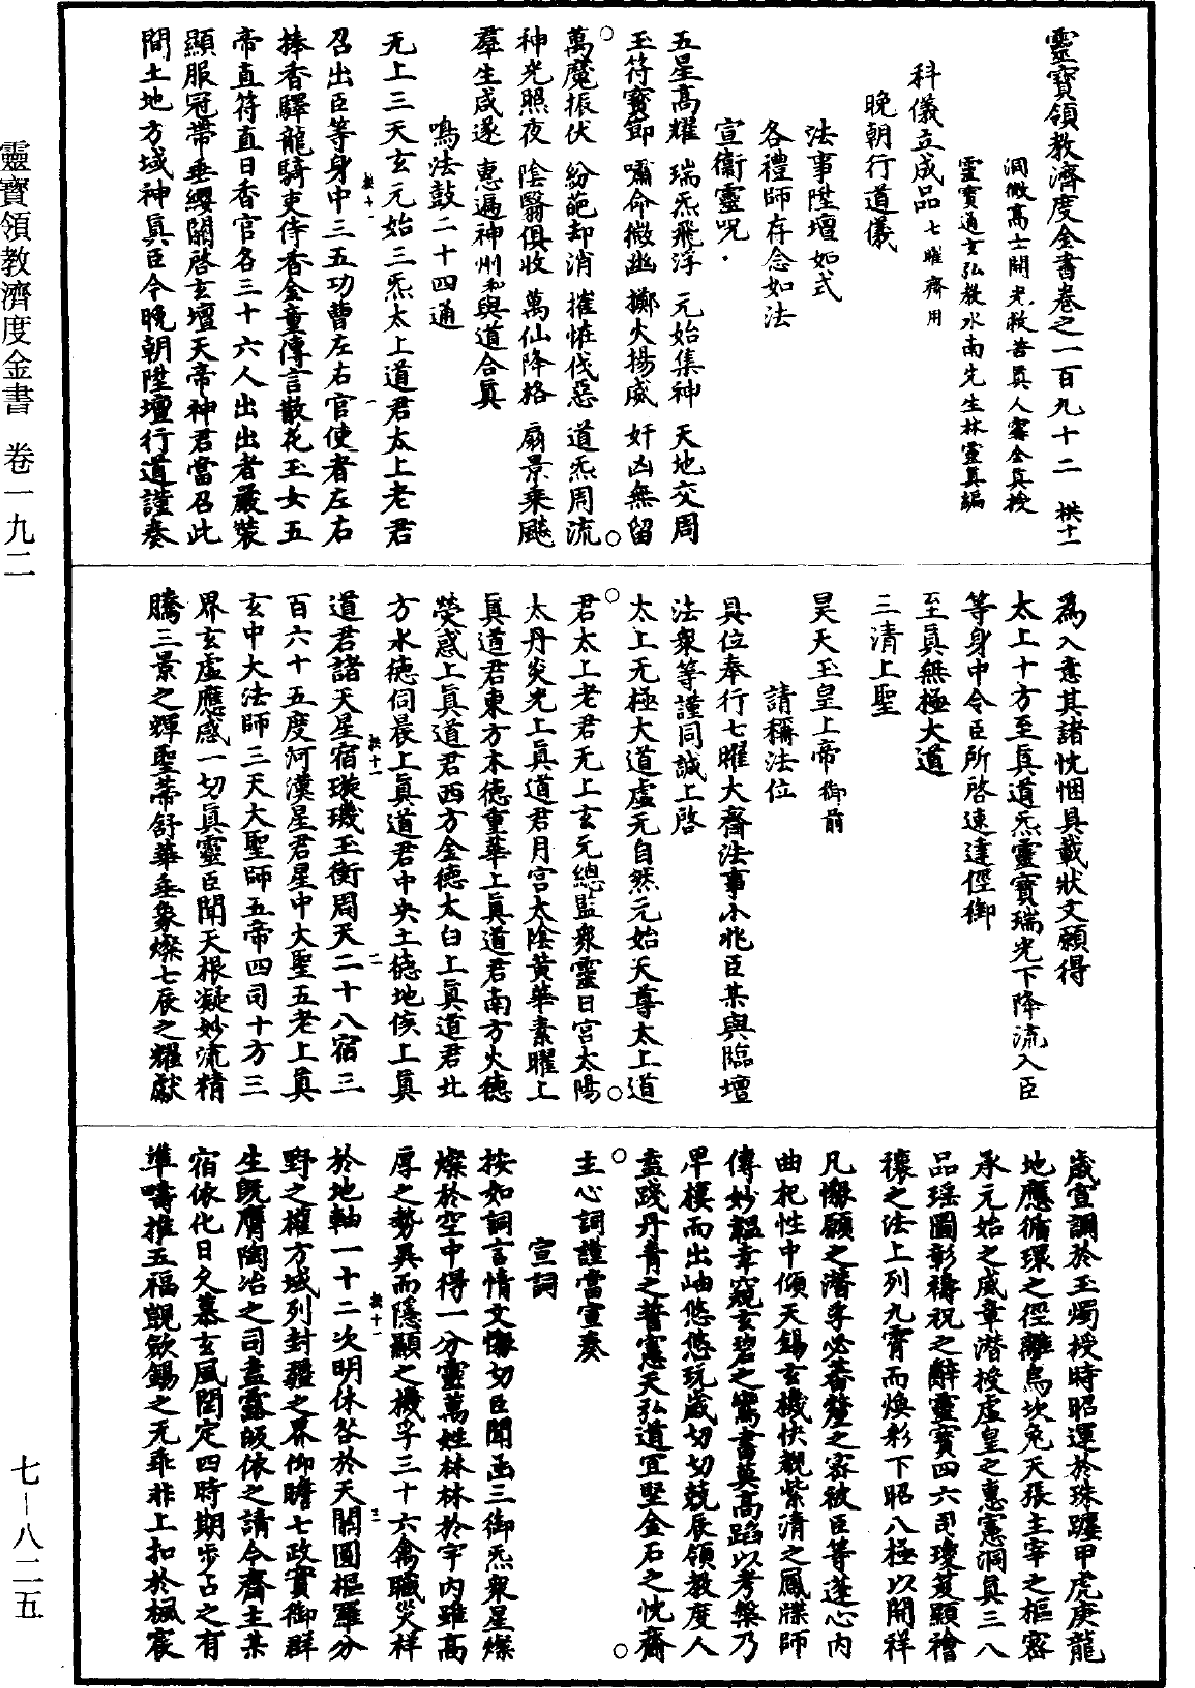 靈寶領教濟度金書卷之一百九十二　拱十一
洞微高士開光救苦眞人甯全眞授
靈寶通玄弘教水南先生林靈眞編
科儀立成品七曜齋用
晚朝行道儀
法事陞壇如式
各禮師存念如法
宣衞靈呪
五星高耀　瑞炁飛浮　元始集神　天地交周
玉符寶節　嘯命徵幽　擲火揚威　奸凶無留
萬魔振伏　紛葩却消　摧怪伐惡　道炁周流
神光照夜　陰翳俱收　萬仙降格　扇景乘飈
羣生咸遂　惠遍神州　和與道合眞
鳴法鼓二十四通
无上三天玄元始三炁太上道君太上老君
召出臣等身中三五功曹左右官使者左右
捧香驛龍騎吏侍香金童傳言散花玉女五
帝直符直日香官各三十六人出出者嚴裝
顯服冠帶垂纓關啓玄壇天帝神君當召此
間土地方域神眞臣今晚朝陞壇行道謹奏
爲入意其諸忱悃具載狀文願得
太上十方至眞道炁靈寶瑞光下降流入臣
等身中令臣所啓速達徑御
至眞無極大道
三清上聖
昊天玉皇上帝御前
請稱法位
具位奉行七曜大齋法事小兆臣某與臨壇
法衆等謹同誠上啓
太上无極大道虛无自然元始天尊太上道
君太上老君无上玄元總監衆靈日宮太陽
太丹炎光上眞道君月宮太陰黃華素曜上
眞道君東方木德重華上眞道君南方火德
熒惑上眞道君西方金德太白上眞道君北
方水德伺晨上眞道君中央土德地侯上眞
道君諸天星宿璇璣玉衡周天二十八宿三
百六十五度河漢星君星中大聖五老上眞
玄中大法師三天大聖師五帝四司十方三
界玄虛應感一切眞靈臣聞天根凝妙流精
騰三景之輝聖蒂舒華垂象燦七辰之耀獻
歲宣調於玉燭授時昭運於珠躔甲虎庚龍
地應循環之徑離烏坎兔天張主宰之樞寥
承元始之威章潛授虛皇之惠憲洞眞三八
品瑶圖彰禱祝之辭靈寶四六司瓊笈顯禬
禳之法上列九霄而煥彩下昭八極以開祥
凡懈願之潛孚必蕃釐之客彼臣等蓬心內
曲杞性中傾天錫玄機快覩紫清之鳳牒師
傳妙韞幸窺玄碧之鸞書莫高蹈以考槃乃
早摟而出岫悠悠玩歲切切兢辰領教度人
盍踐丹青之誓憲天弘道宜堅金石之忱齋
主心詞謹當宣奏
宣詞
按如詞言情文懈切臣聞函三御炁衆星燦
燦於空中得一分靈萬姓林林於宇內雖高
厚之勢異而隱顯之機孚三十六禽職災祥
於地軸一十二次明休咎於天關圖樞羅分
野之權方域列封疆之界仰瞻七政實御群
生旣膺陶冶之司盍露皈依之請今齋主某
宿依化日久慕玄風閏定四時期步占之有
準疇推五福覬歛錫之无乖非上扣於楓宸
拱十一　一
拱十一　二
拱十一　三
靈寶領教濟度金書　卷一九二
七－八二五